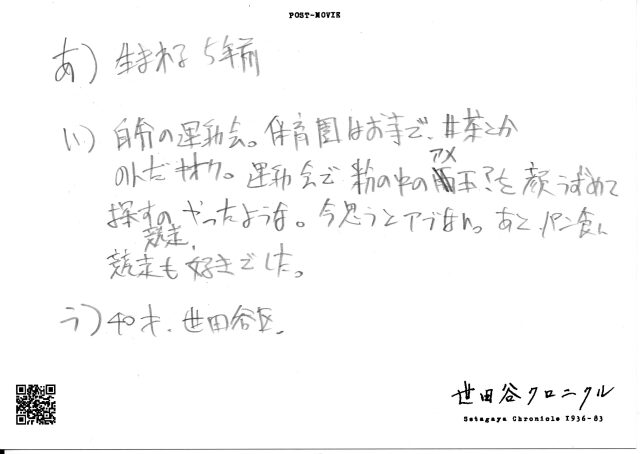 POST-MOVIE
あ) 生まれる5年前
い) 自分の運動会。保育園はお寺で、甘茶とか
のんだキオク。運動会で粉の中のアメ玉?を顔うずめて
探すの競走、やったような。今思うとアブない。あと、パン食い
競走も好きでした。
う) 40才、世田谷区、
世田谷クロニクル
Setagaya Chronicle 1936-83